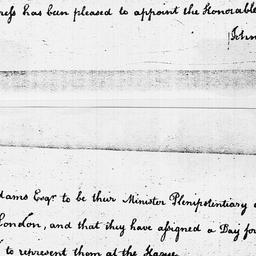 has been pleased to appoint the Honorable
John
Esqr. to be their Minister Plenipotentiary
London, and that they have assigned a Day for
to represent them at the Hague